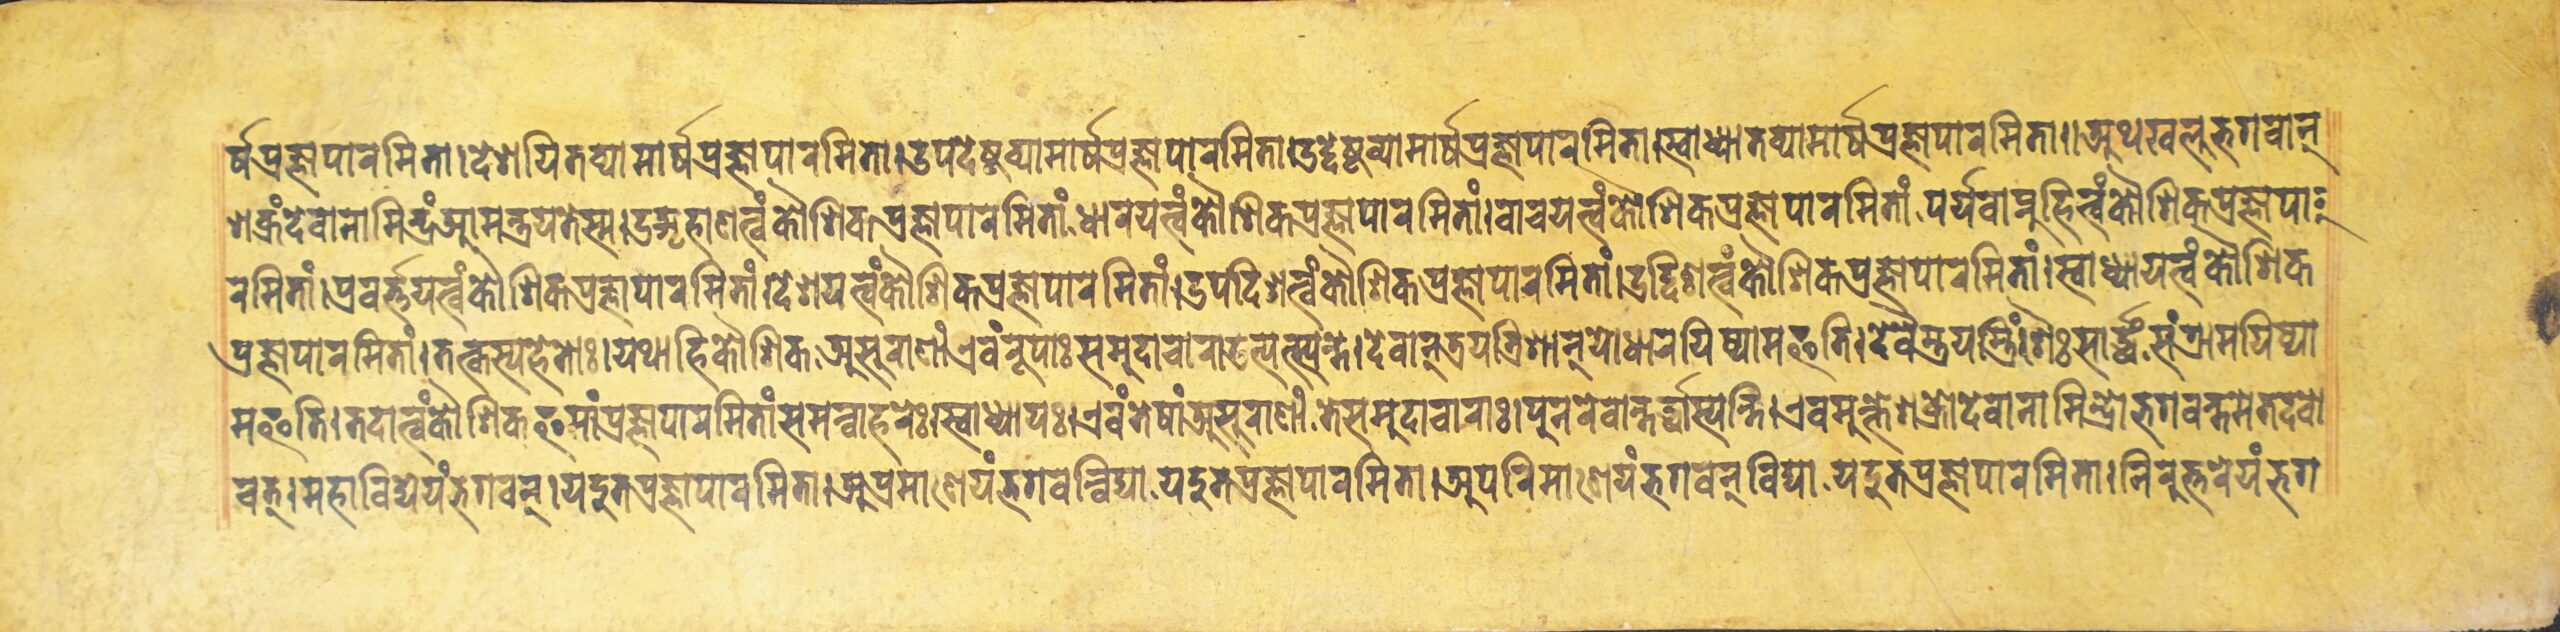 र्षप्रज्ञापारमिता।देशयितव्यामार्षप्रज्ञापारमिता।उपदेष्टव्यामार्षप्रज्ञापारमिता।उद्देष्टव्यामार्षप्रज्ञापारमिता।स्वाध्यातव्यामार्षप्रज्ञापारमिता॥अथखलुभगवान्
शक्रंदेवानामिन्द्रंआमन्त्रयतेस्म।उद्गृहाणत्वंकौशिकप्रज्ञापारमितां।धारयत्वंकौशिकप्रज्ञापारमितां।वाचयत्वंकौशिकप्रज्ञापारमितां।पर्यवाप्नुहित्वंकौशिकप्रज्ञापा
रमितां।प्रवर्त्तयत्वंकौशिकप्रज्ञापारमितां।देशयत्वंकौशिकप्रज्ञापारमितां।उपदिशत्वंकौशिकप्रज्ञापारमितां।उद्दिशत्वंकौशिकप्रज्ञापारमितां।स्वाध्यायत्वंकौशिक
प्रज्ञापारमितां।तत्कस्यहेतोः।यथाहिकौशिक।असुराणां।एवंरूपाःसमुदाचाराउत्पत्स्यन्ते।देवान्त्रयत्रिशान्योधारयिष्यामइति।देवैस्त्रयस्त्रिंशैःसार्द्धं।संग्रामयिष्या
मइति।तदात्वंकौशिकइमांप्रज्ञापारमितांसमन्वाहरेः।स्वाध्यायः।एवंतेषांअसुराणां।तेसमुदाचाराः।पुनरेवान्तर्द्धास्यन्ति।एवमुक्तेशक्रोदेवानामिन्द्रोभगवन्तमेतदवो
चत्।महाविद्येयंभगवन्।यदुतप्रज्ञापारमिता।अप्रमाणेयंभगवन्विद्या।यदुतप्रज्ञापारमिता।अपरिमाणेयंभगवन्विद्या।यदुतप्रज्ञापारमिता।निरुत्तरेयंभग